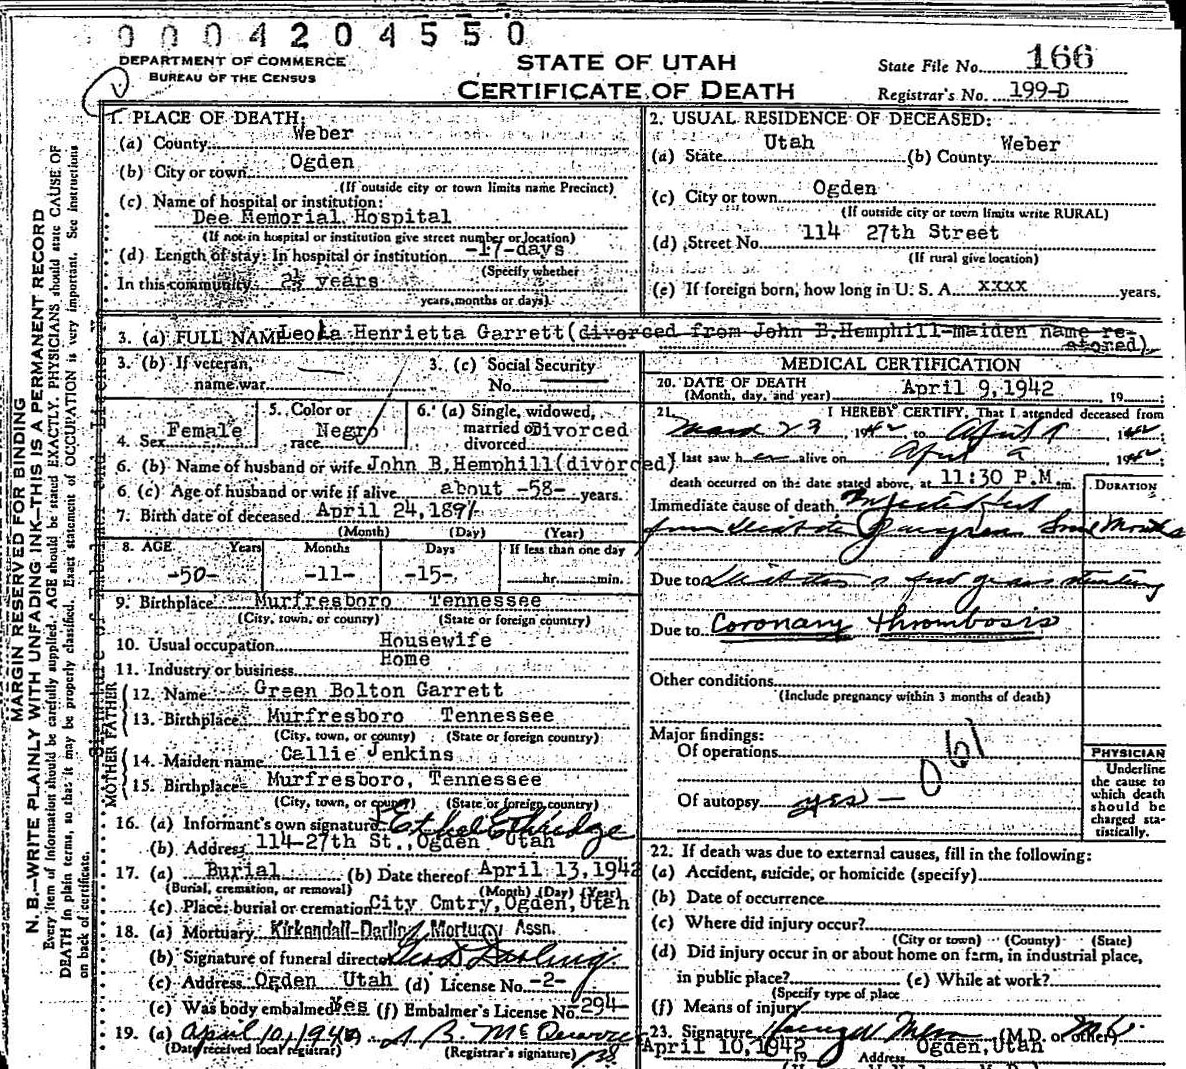 0 0 0 4 2 0 4 5 5 0
DEPARTMENT OF COMMERCE
BUREAU OF THE CENSUS
STATE OF UTAH
CERTIFICATE OF DEATH
State File No. 166
Registrar's No. 199-D
MARGIN RESERVED FOR BINDING
N. B.—WRITE PLAINLY WITH UNFADING INK—THIS IS A PERMANENT RECORD
Every item of information should be carefully supplied. AGE should be stated EXACTLY. PHYSICIANS should state CAUSE OF
DEATH in plain terms, so that it may be properly classified. Exact statement of OCCUPATION is very important. See instructions
on back of certificate.
1. PLACE OF DEATH:
(a) County Weber
(b) City or town Ogden
(If outside city or town limits name Precinct)
(c) Name of hospital or institution:
Dee Memorial Hospital
(If not in hospital or institution give street number or location)
(d) Length of stay: In hospital or institution -17-days
(Specify whether
In this community 2½ years
years, months or days)
2. USUAL RESIDENCE OF DECEASED:
(a) State Utah (b) County Weber
(c) City or town Ogden
(If outside city or town limits write RURAL)
(d) Street No. 114 27th Street
(If rural give location)
(e) If foreign born, how long in U. S. A. xxxx years.
3. (a) FULL NAME Leola Henrietta Garrett (divorced from John B. Hemphill-maiden name re-
stored)
3. (b) If veteran,
name war
3. (c) Social Security
No.
4. Sex Female
5. Color or
race Negro
6. (a) Single, widowed,
married or
divorced Divorced
6. (b) Name of husband or wife John B. Hemphill (divorced)
6. (c) Age of husband or wife if alive about -58- years.
7. Birth date of deceased April 24, 1891
(Month) (Day) (Year)
8. AGE Years Months Days If less than one day
-50- -11- -15- hr. min.
9. Birthplace Murfresboro Tennessee
(City, town, or county) (State or foreign country)
10. Usual occupation Housewife
11. Industry or business Home
FATHER
12. Name Green Bolton Garrett
13. Birthplace Murfresboro Tennessee
(City, town, or county) (State or foreign country)
MOTHER
14. Maiden name Callie Jenkins
15. Birthplace Murfresboro, Tennessee
(City, town, or county) (State or foreign country)
16. (a) Informant's own signature Ethel Ethridge
(b) Address 114-27th St., Ogden Utah
17. (a) Burial (b) Date thereof April 13, 1942
(Burial, cremation, or removal) (Month) (Day) (Year)
(c) Place: burial or cremation City Cmtry, Ogden, Utah
18. (a) Mortuary Kirkendall-Darling Mortuary Assn.
(b) Signature of funeral director Darling
(c) Address Ogden Utah (d) License No. -2-
(e) Was body embalmed Yes (f) Embalmer's License No. -294-
19. (a) April 10, 1942
(Date received local registrar) (Registrar's signature)
MEDICAL CERTIFICATION
20. DATE OF DEATH
(Month, day, and year) April 9, 1942 19
21. I HEREBY CERTIFY, That I attended deceased from
March 23, 1942 to April 9, 1942
I last saw her alive on April 9 1942
death occurred on the date stated above, at 11:30 P.M. m.
DURATION
Immediate cause of death
Due to
Due to Coronary thrombosis
Other conditions
(Include pregnancy within 3 months of death)
Major findings:
Of operations
Of autopsy yes —
PHYSICIAN
Underline
the cause to
which death
should be
charged sta-
tistically.
22. If death was due to external causes, fill in the following:
(a) Accident, suicide, or homicide (specify)
(b) Date of occurrence
(c) Where did injury occur?
(City or town) (County) (State)
(d) Did injury occur in or about home on farm, in industrial place,
in public place? (e) While at work?
(Specify type of place
(f) Means of injury
23. Signature (M.D. or other)
April 10, 1942 19 Address Ogden, Utah